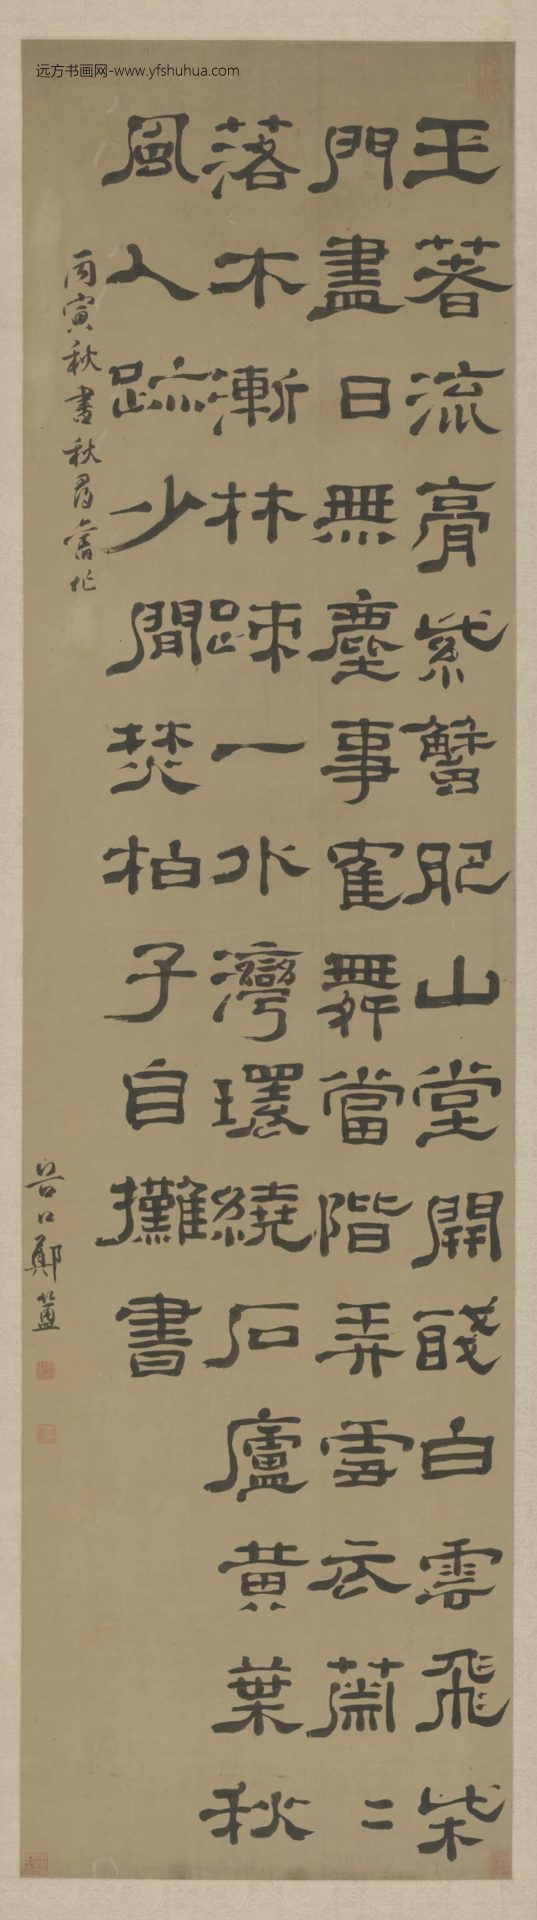 远方书画网-www.yfshuhua.com
玉著流膏紫蟹肥山堂開醆白雲飛柴
門盡日無塵事隺舞當階弄雪衣蕭二
落木漸林踈一水灣環繞石廬黃葉秋
風人跡少閒焚柏子自攤書
丙寅秋書秋舊作
谷口鄭簠